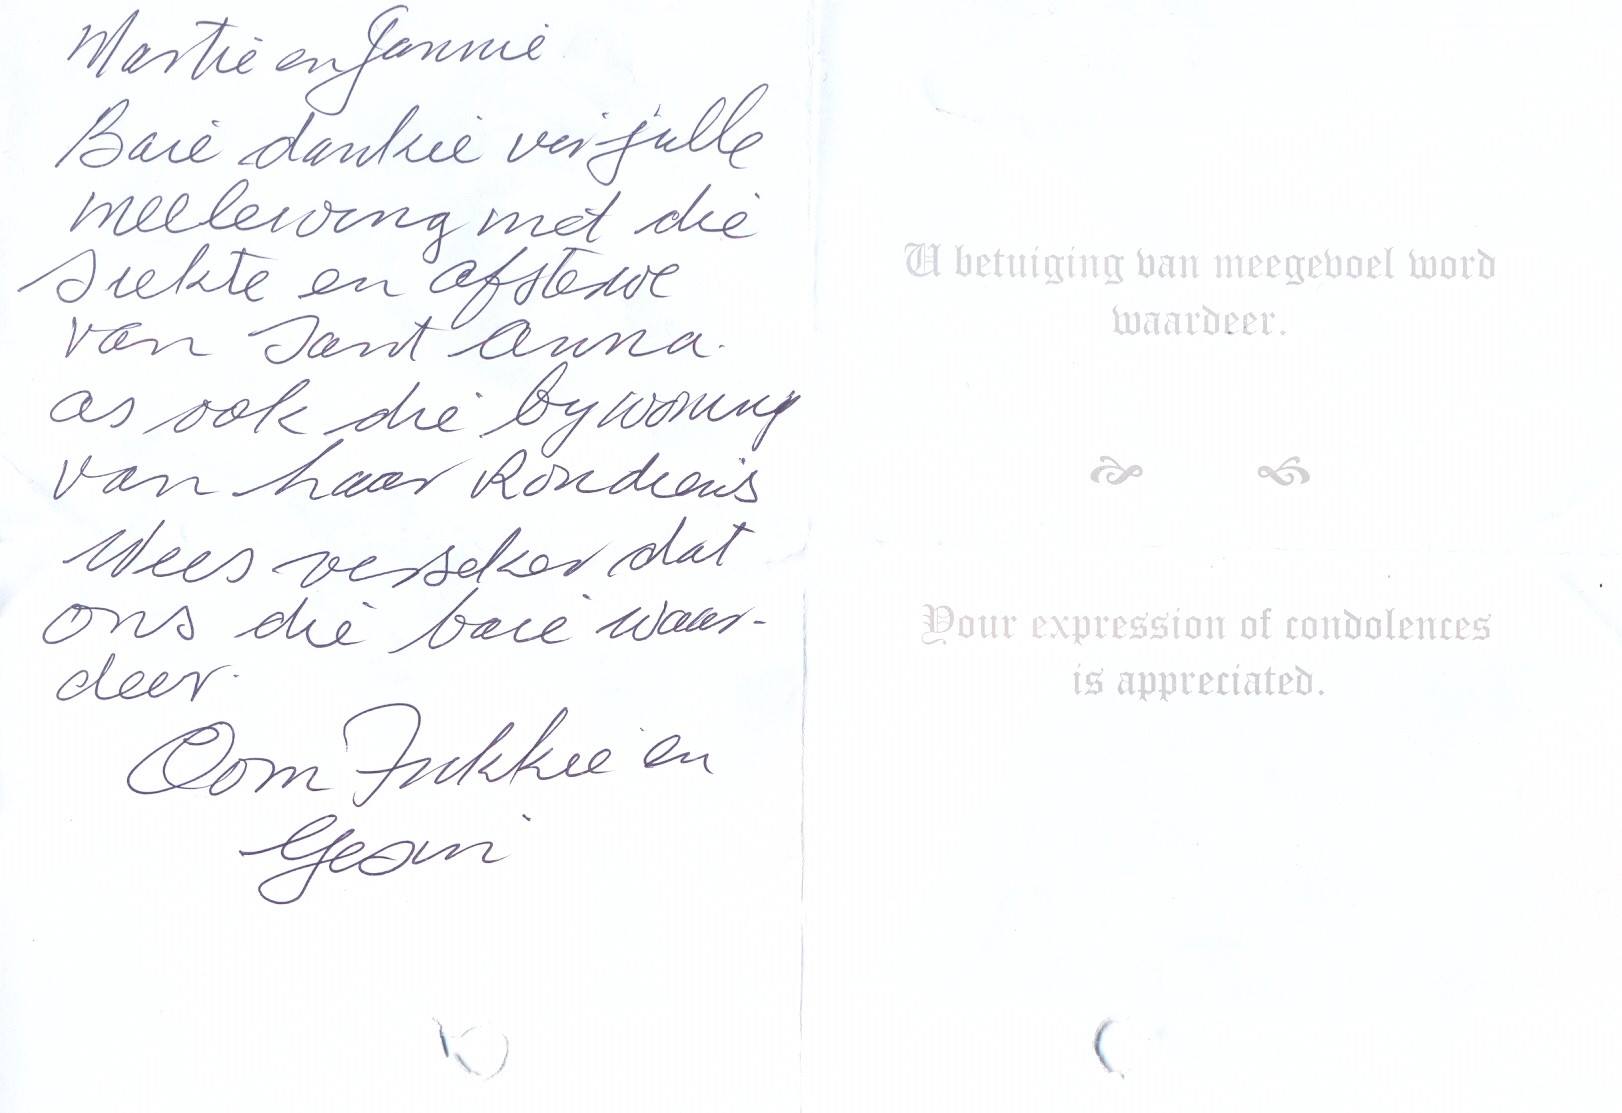 Martie en Jannie
Baie dankie vir julle
meelewing met die
siekte en afsterwe
van Tant Anna.
as ook die bywoning
van haar Roudiens
Wees verseker dat
ons die baie waar-
deer.
Oom Fukkie en
Gesin
U betuiging van meegevoel word
waardeer.
Your expression of condolences
is appreciated.